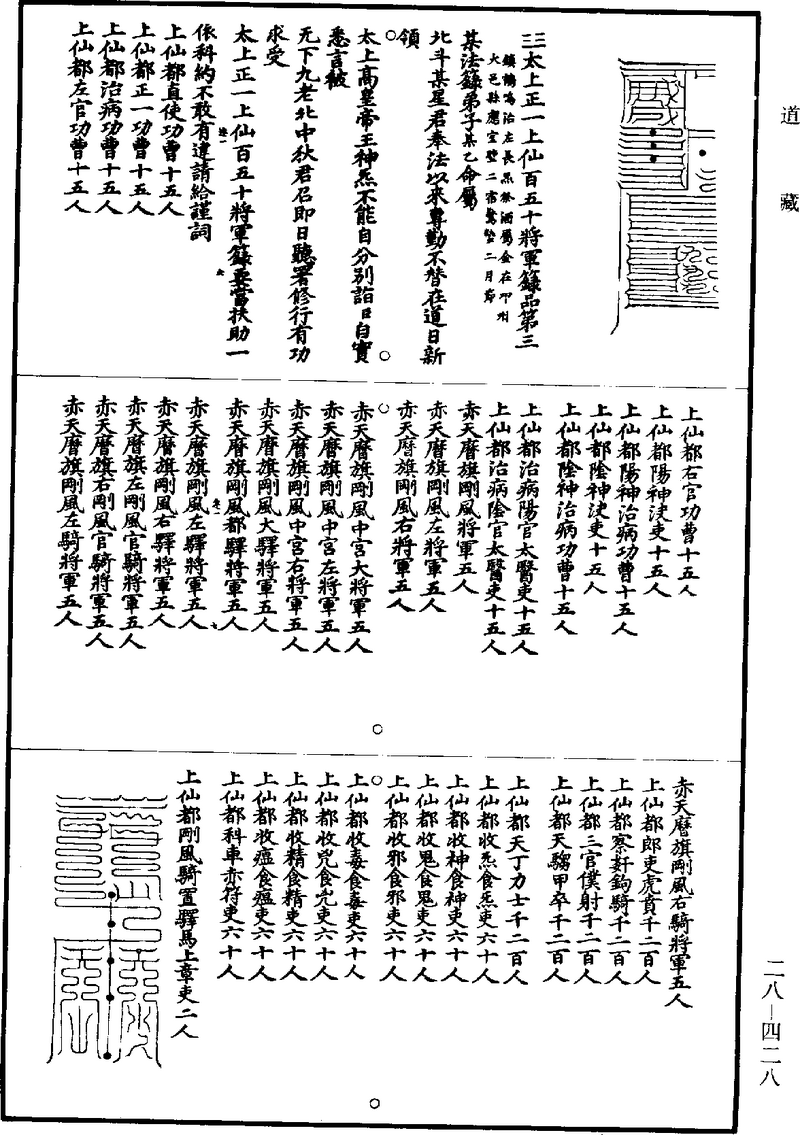 道藏
三三太上正一上仙百五十將軍籙品第三
鎮鶴鳴治左長炁祭酒屬金在邛州
大邑縣應室壁二宿驚蟄二月節
某法籙弟子某乙命屬
北斗某星君奉法以來專勤不替在道日新
領
太上高皇帝王神炁不能自分別詣曰自實
悉言被
无下九老北中秋君召即日聽署修行有功
求受
太上正一上仙百五十將軍籙要當扶助一
依科納不敢有違請給謹詞
上仙都直使功曹十五人
上仙都正一功曹十五人
上仙都治病功曹十五人
上仙都左官功曹十五人
上仙都右官功曹十五人
上仙都陽神決吏十五人
上仙都陽神治病功曹十五人
上仙都陰神決吏十五人
上仙都陰神治病功曹十五人
上仙都治病陽官太醫吏十五人
上仙都治病陰官太醫吏十五人
赤天麿旗剛風將軍五人
赤天麿旗剛風左將軍五人
赤天麿旗剛風右將軍五人
赤天麿旗剛風中宮大將軍五人
赤天麿旗剛風中宮左將軍五人
赤天麿旗剛風中宮右將軍五人
赤天麿旗剛風大驛將軍五人
赤天麿旗剛風都驛將軍五人
赤天麿旗剛風左驛將軍五人
赤天麿旗剛風右驛將軍五人
赤天麿旗左剛風官騎將軍五人
赤天麿旗右剛風官騎將軍五人
赤天麿旗剛風左騎將軍五人
赤天麿旗剛風右騎將軍五人
上仙都郎吏虎賁千二百人
上仙都察奸鉤騎千二百人
上仙都三官僕射千二百人
上仙都天騶甲卒千二百人
上仙都天丁力士千二百人
上仙都收炁食炁吏六十人
上仙都收神食神吏六十人
上仙都收鬼食鬼吏六十人
上仙都收邪食邪吏六十人
上仙都收毒食毒吏六十人
上仙都收兇食兇吏六十人
上仙都收精食精吏六十人
上仙都收瘟食瘟吏六十人
上仙都科車赤符吏六十人
上仙都剛風騎置驛馬上章吏二人
二八—四二八